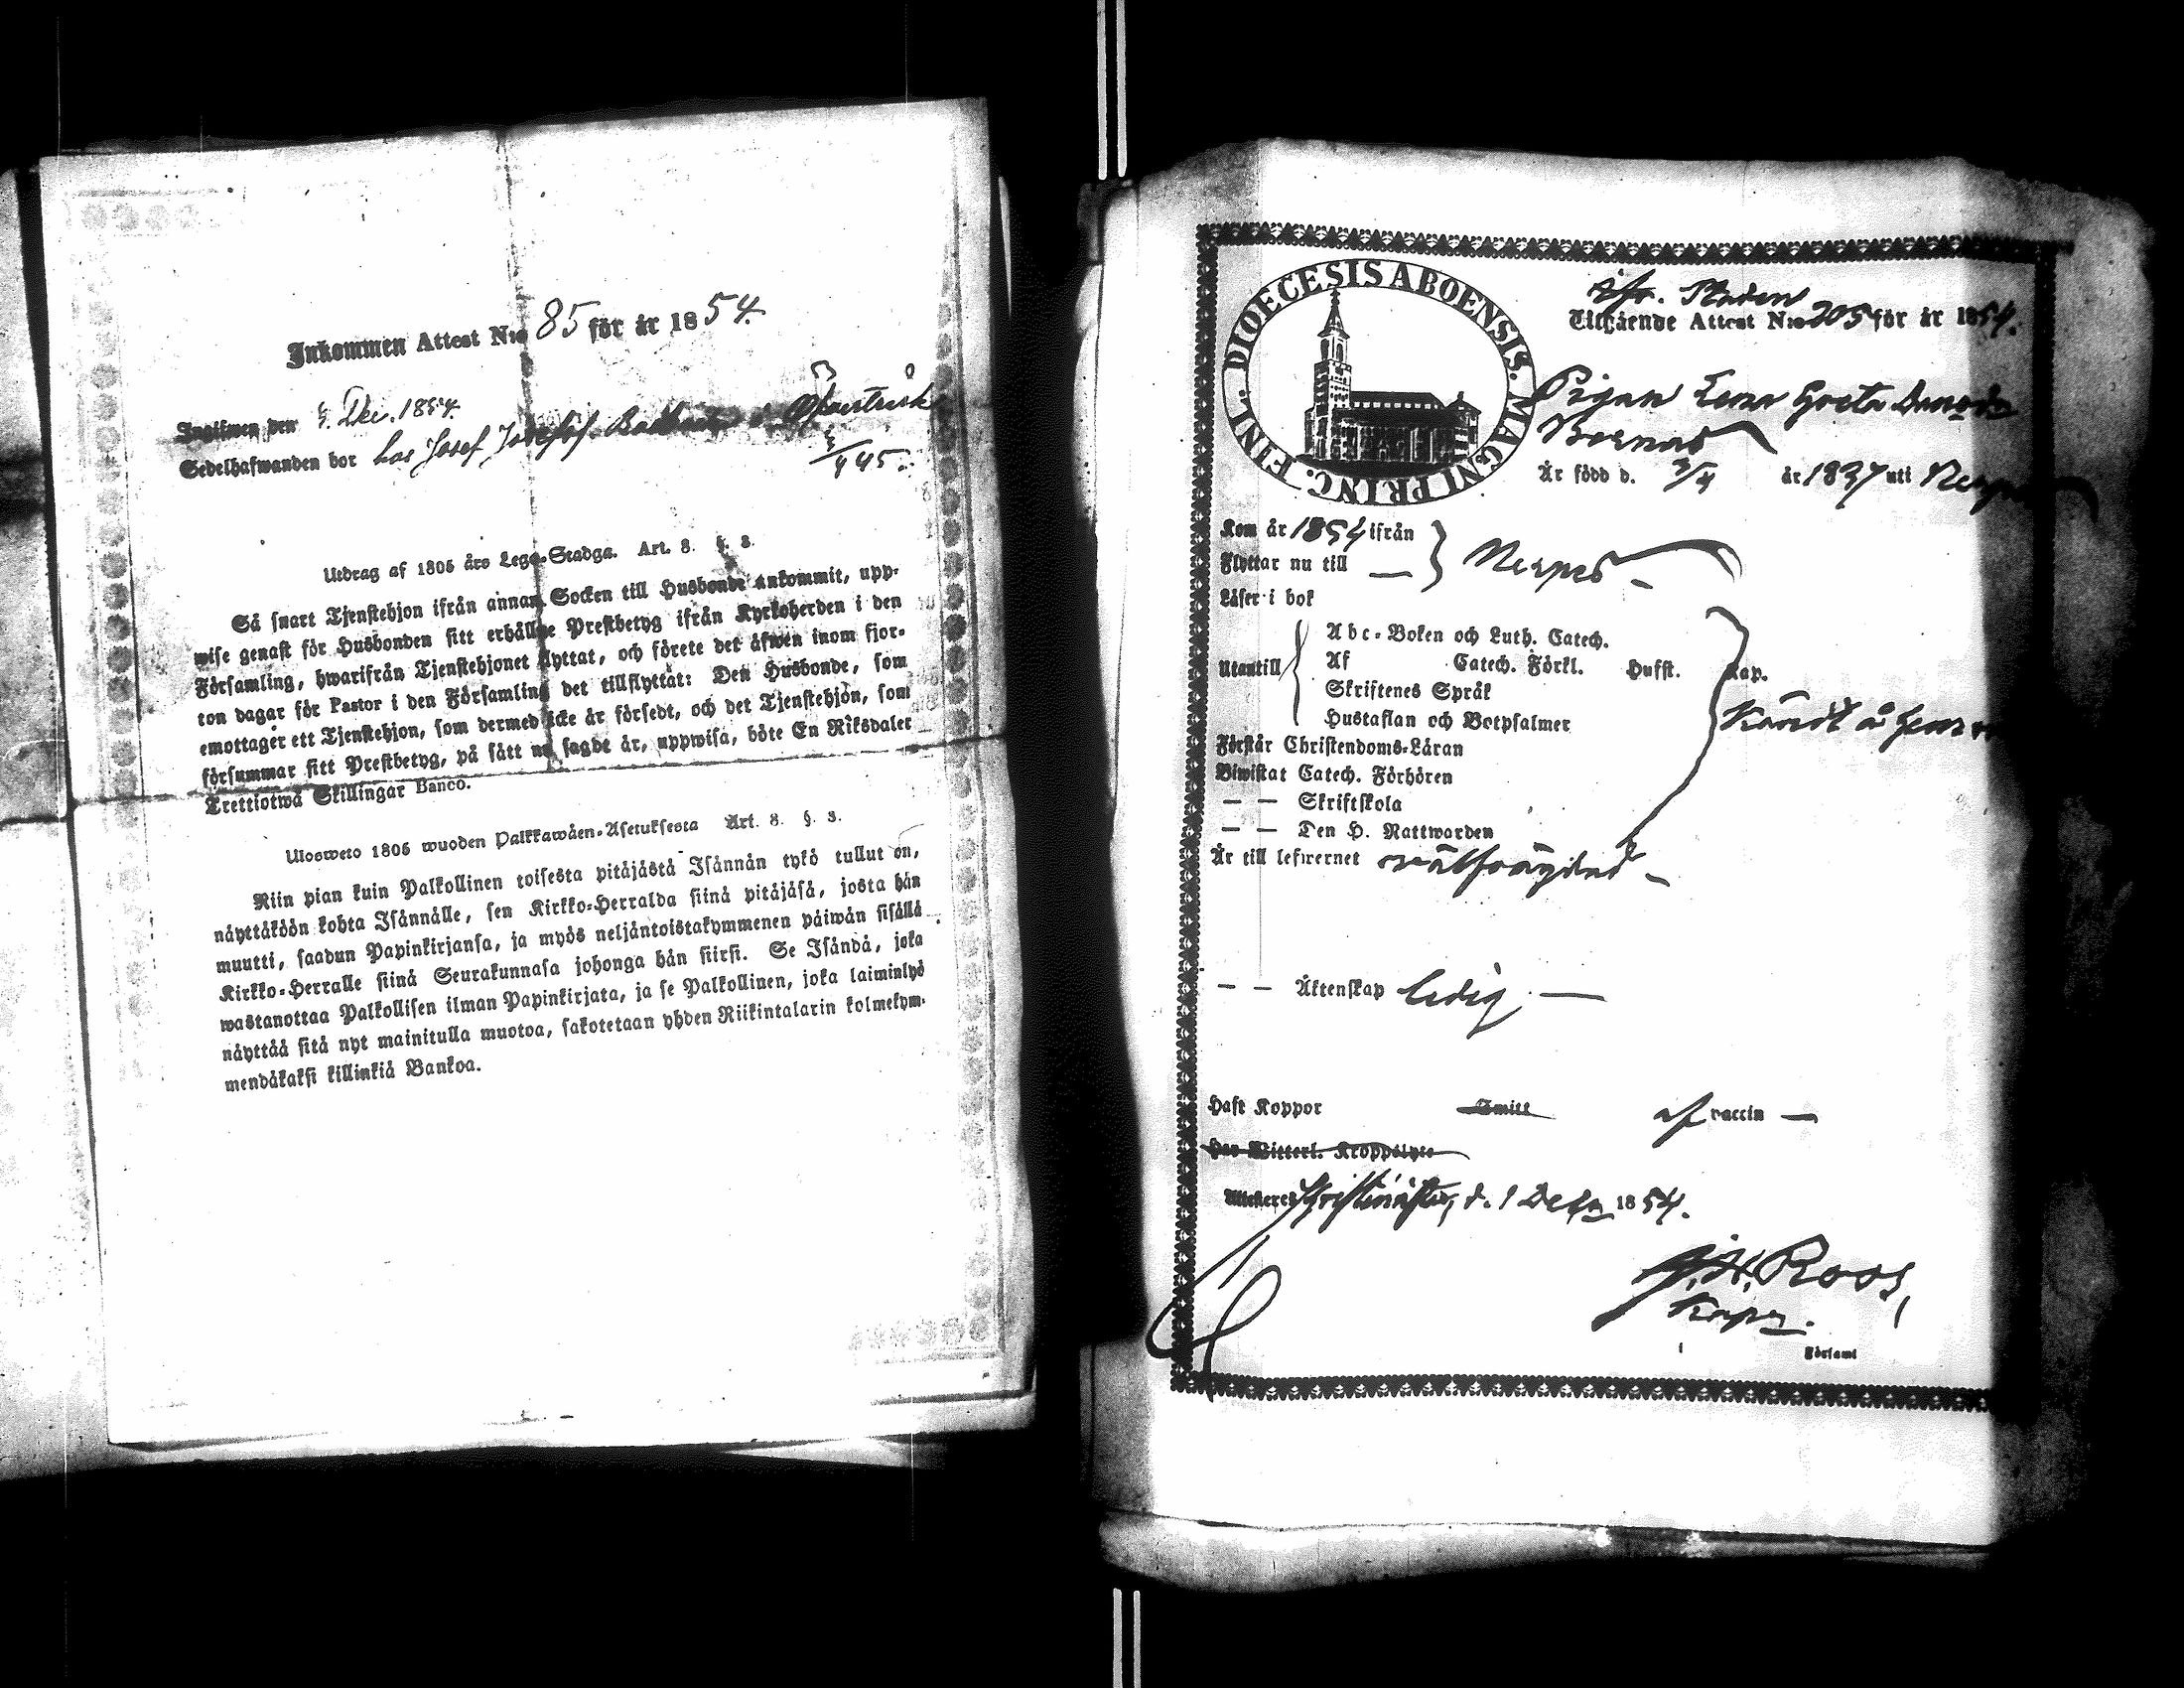 Inkommen Attest N:o 85 för år 1854.
Ingifwen den 4 Dec. 1854.
Sedelhafwanden bor hos Josef Josefss.
445.
Utdrag af 1805 års Lego-Stadga. Art. 8. §. 3.
Så snart Tjenstehjon ifrån annan Socken till Husbonde ankommit, upp-
wise genast för Husbonden sitt erhållne Prestbetyg ifrån Kyrkoherden i den
Församling, hwarifrån Tjenstehjonet flyttat, och förete det äfwen inom fjor-
ton dagar för Pastor i den Församling det tillflyttat: Den Husbonde, som
emottager ett Tjenstehjon, som dermed icke är försedt, och det Tjenstehjon, som
försummar sitt Prestbetyg, på sätt nu sagdt är, uppwisa, böte En Riksdaler
Trettiotwå Skillingar Banco.
Ulosweto 1805 wuoden Palkkawäen-Asetuksesta Art. 8. §. 3.
Niin pian kuin Palkollinen toisesta pitäjästä Isännän tykö tullut on,
näyttäköön kohta Isännälle, sen Kirkko-Herralda siinä pitäjäsä, josta hän
muutti, saadun Papinkirjansa, ja myös neljäntoistakymmenen päiwän sisällä
Kirkko-Herralle siinä Seurakunnasa johonga hän siirsi. Se Isändä, joka
wastanottaa Palkollisen ilman Papinkirjata, ja se Palkollinen, joka laiminlyö
näyttää sitä nyt mainitulla muotoa, sakotetaan yhden Riikintalarin kolmekym-
mendäkaksi killinkiä Bankoa.
DIOECESIS ABOENSIS. MAGNI PRINC. FINL.
Staden
Utgående Attest N:o 205 för år 1854.
Pigan Lena Greta
Är född d. 3/4 år 1837 uti Nerpes
Kom år 1854 ifrån
Flyttar nu till — Nerpes —
Läser i bok
Utantill
Abc-Boken och Luth. Catech.
Af Catech. Förkl. Hufst. Kap.
Skriftenes Språk
Hustaflan och Botpsalmer
Kändt
Förstår Christendoms-Läran
Biwistat Catech. Förhören
— — Skriftskola
— — Den H. Nattwarden
Är till lefwernet wälfrägdad —
— — Äktenskap ledig. —
Haft Koppor Smitt af vaccin —
Har Witterl. Kroppslyte
Attesteres Christinestad, d. 1 Decbr 1854.
J. H. Roos,
Förslamt